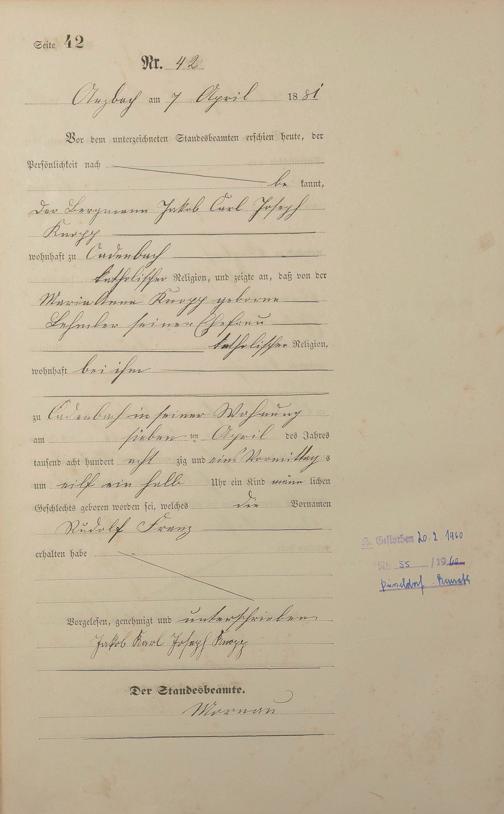 Seite 42
Nr. 42
Arzbach am 7 April 1881
Vor dem unterzeichneten Standesbeamten erschien heute, der
Persönlichkeit nach
be kannt,
der Bergmann Jakob Carl Joseph
Knopp
wohnhaft zu Cadenbach
katholischer Religion, und zeigte an, daß von der
Maria Anna Knopp geborne
seiner Ehefrau
katholischer Religion,
wohnhaft bei ihm
zu Cadenbach in seiner Wohnung
am sieben ten April des Jahres
tausend acht hundert acht zig und eins Vormittag s
um eilf ein halb Uhr ein Kind männ lichen
Geschlechts geboren worden sei, welches die Vornamen
Rudolf Franz
erhalten habe
Vorgelesen, genehmigt und unterschrieben
Jakob Karl Joseph Knopp
Der Standesbeamte.
Mornau
Gestorben 20.2 1960
Nr. 55 /1960
Düsseldorf Benrath